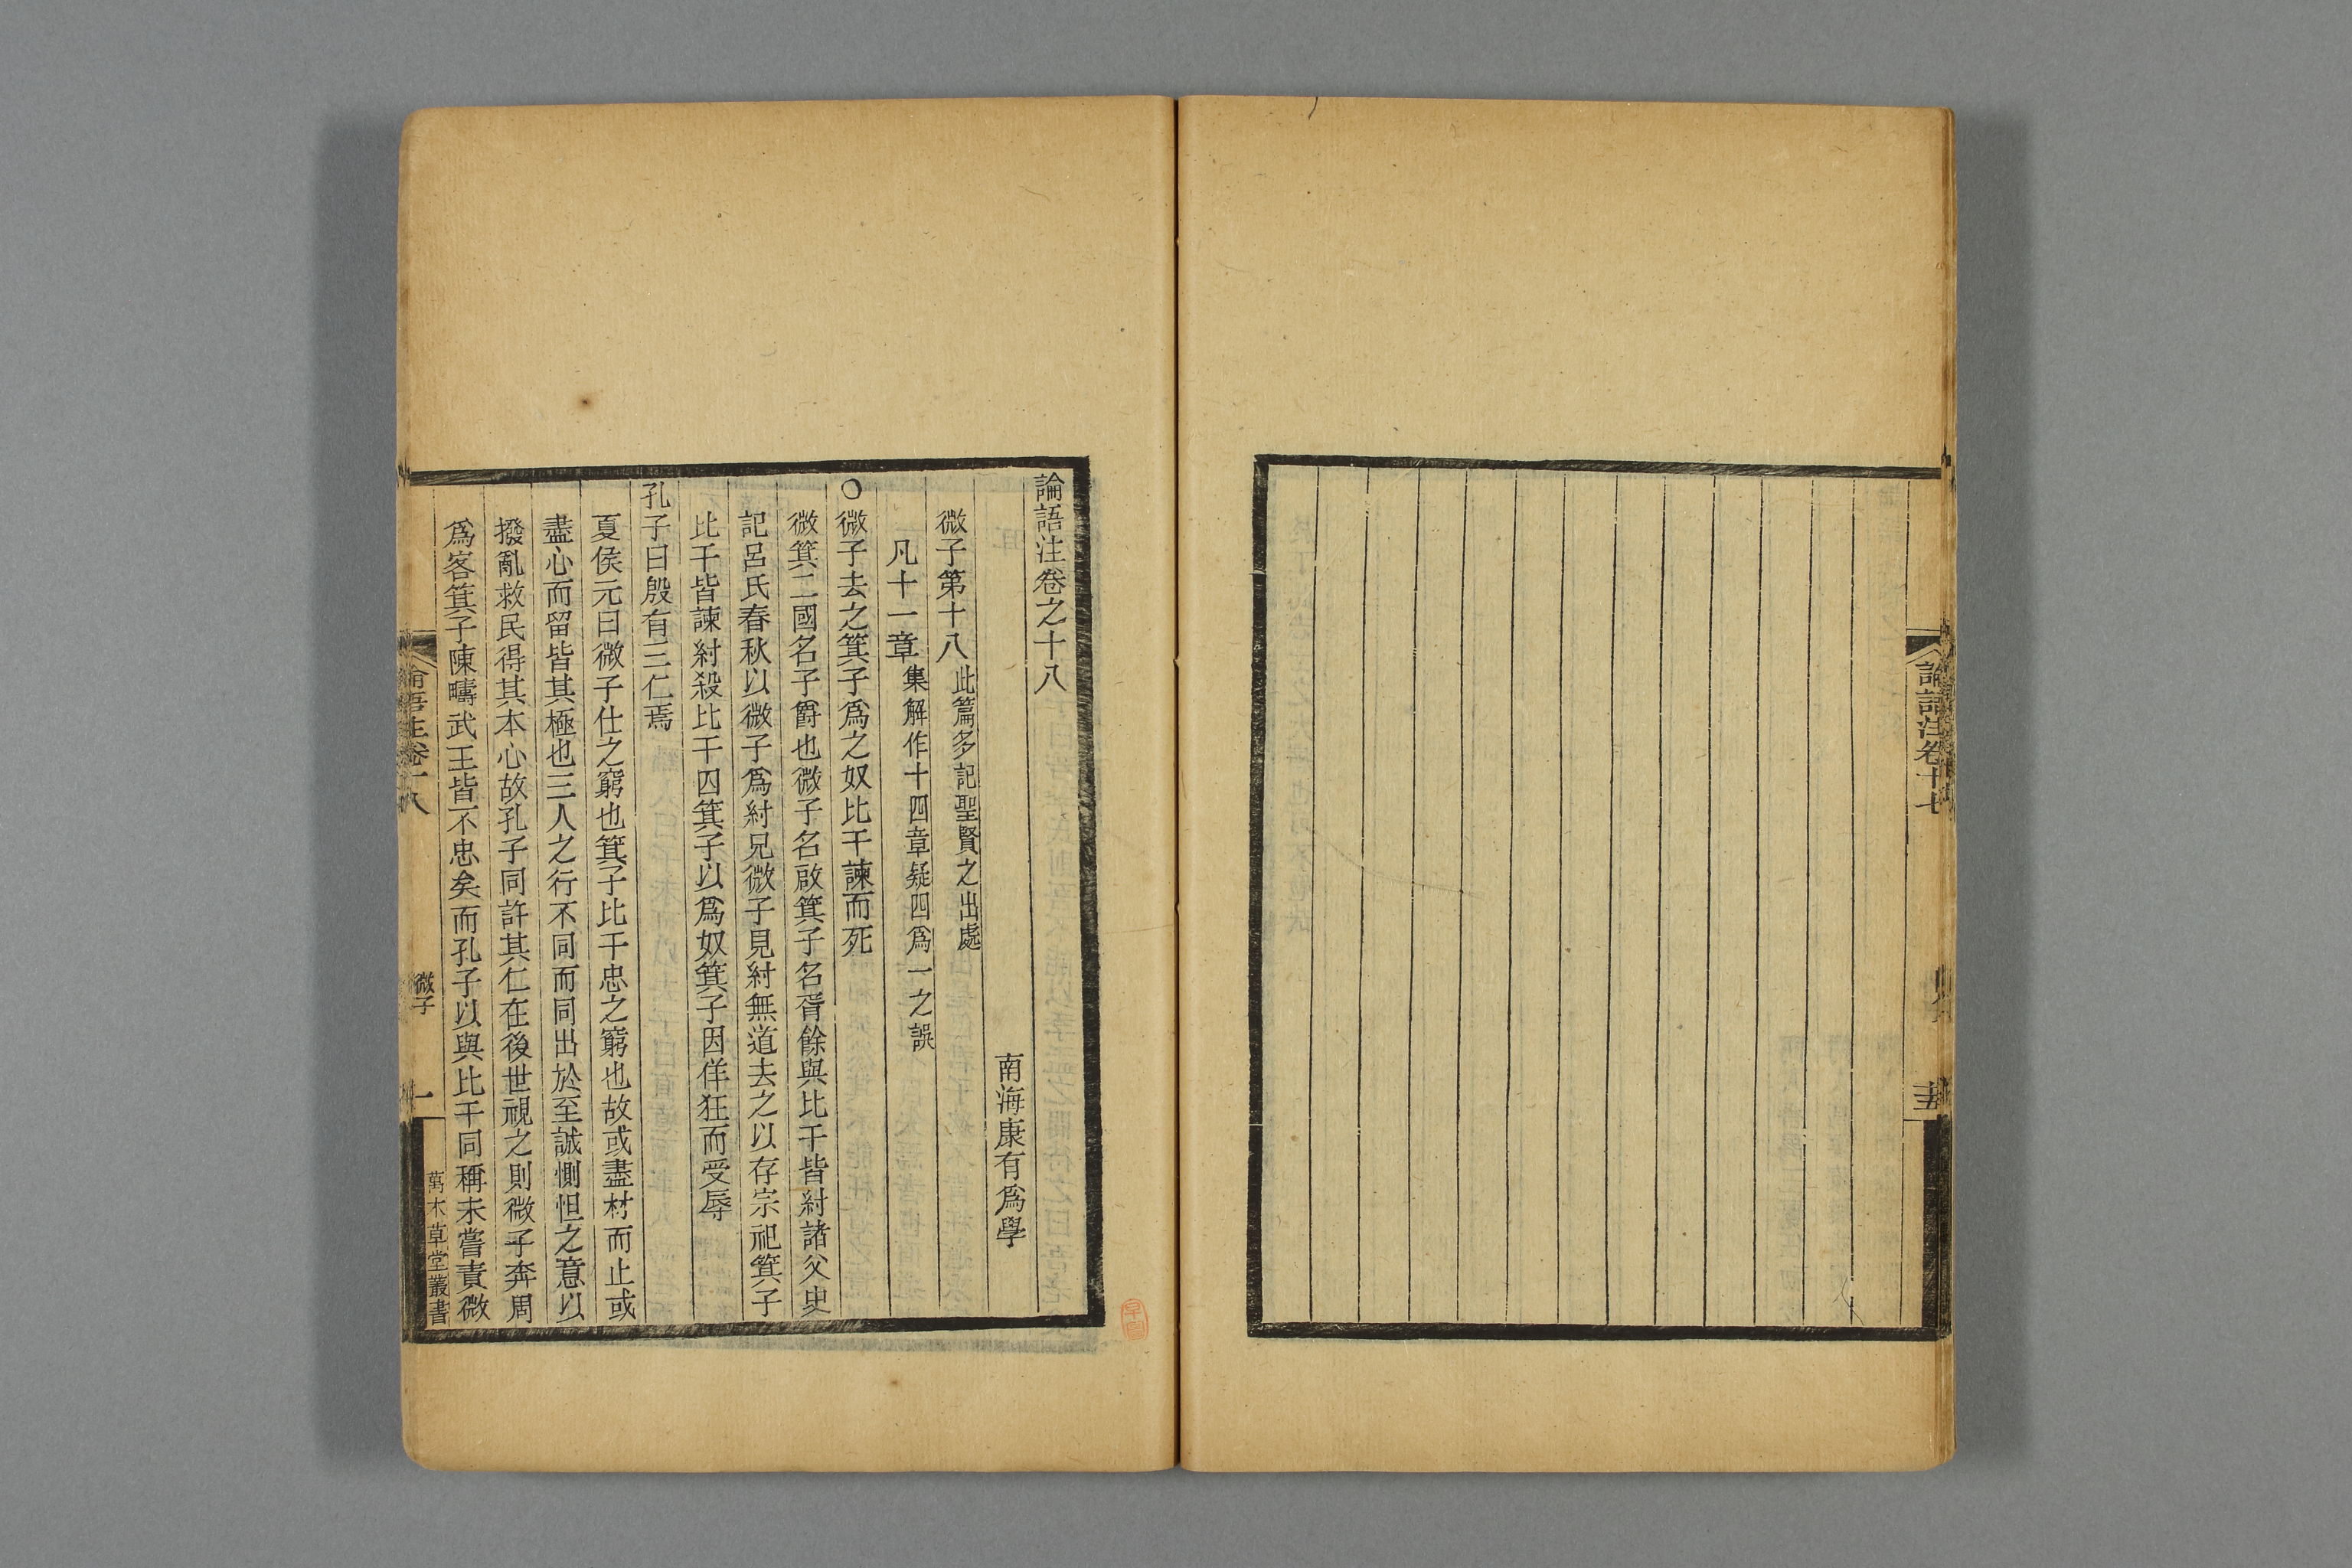 論語注卷十七
論語注卷之十八
南海康有爲學
微子第十八此篇多記聖賢之出處
凡十一章集解作十四章疑四爲一之誤
○微子去之箕子爲之奴比干諫而死
微箕二國名子爵也微子名啟箕子名胥餘與比干皆紂諸父史
記呂氏春秋以微子爲紂兄微子見紂無道去之以存宗祀箕子
比干皆諫紂殺比干囚箕子以爲奴箕子因佯狂而受辱
孔子曰殷有三仁焉
夏侯元曰微子仕之窮也箕子比干忠之窮也故或盡材而止或
盡心而留皆其極也三人之行不同而同出於至誠惻怛之意以
撥亂救民得其本心故孔子同許其仁在後世視之則微子奔周
爲客箕子陳疇武王皆不忠矣而孔子以與比干同稱未嘗責微
論語注卷十八
微子
一
萬木草堂叢書